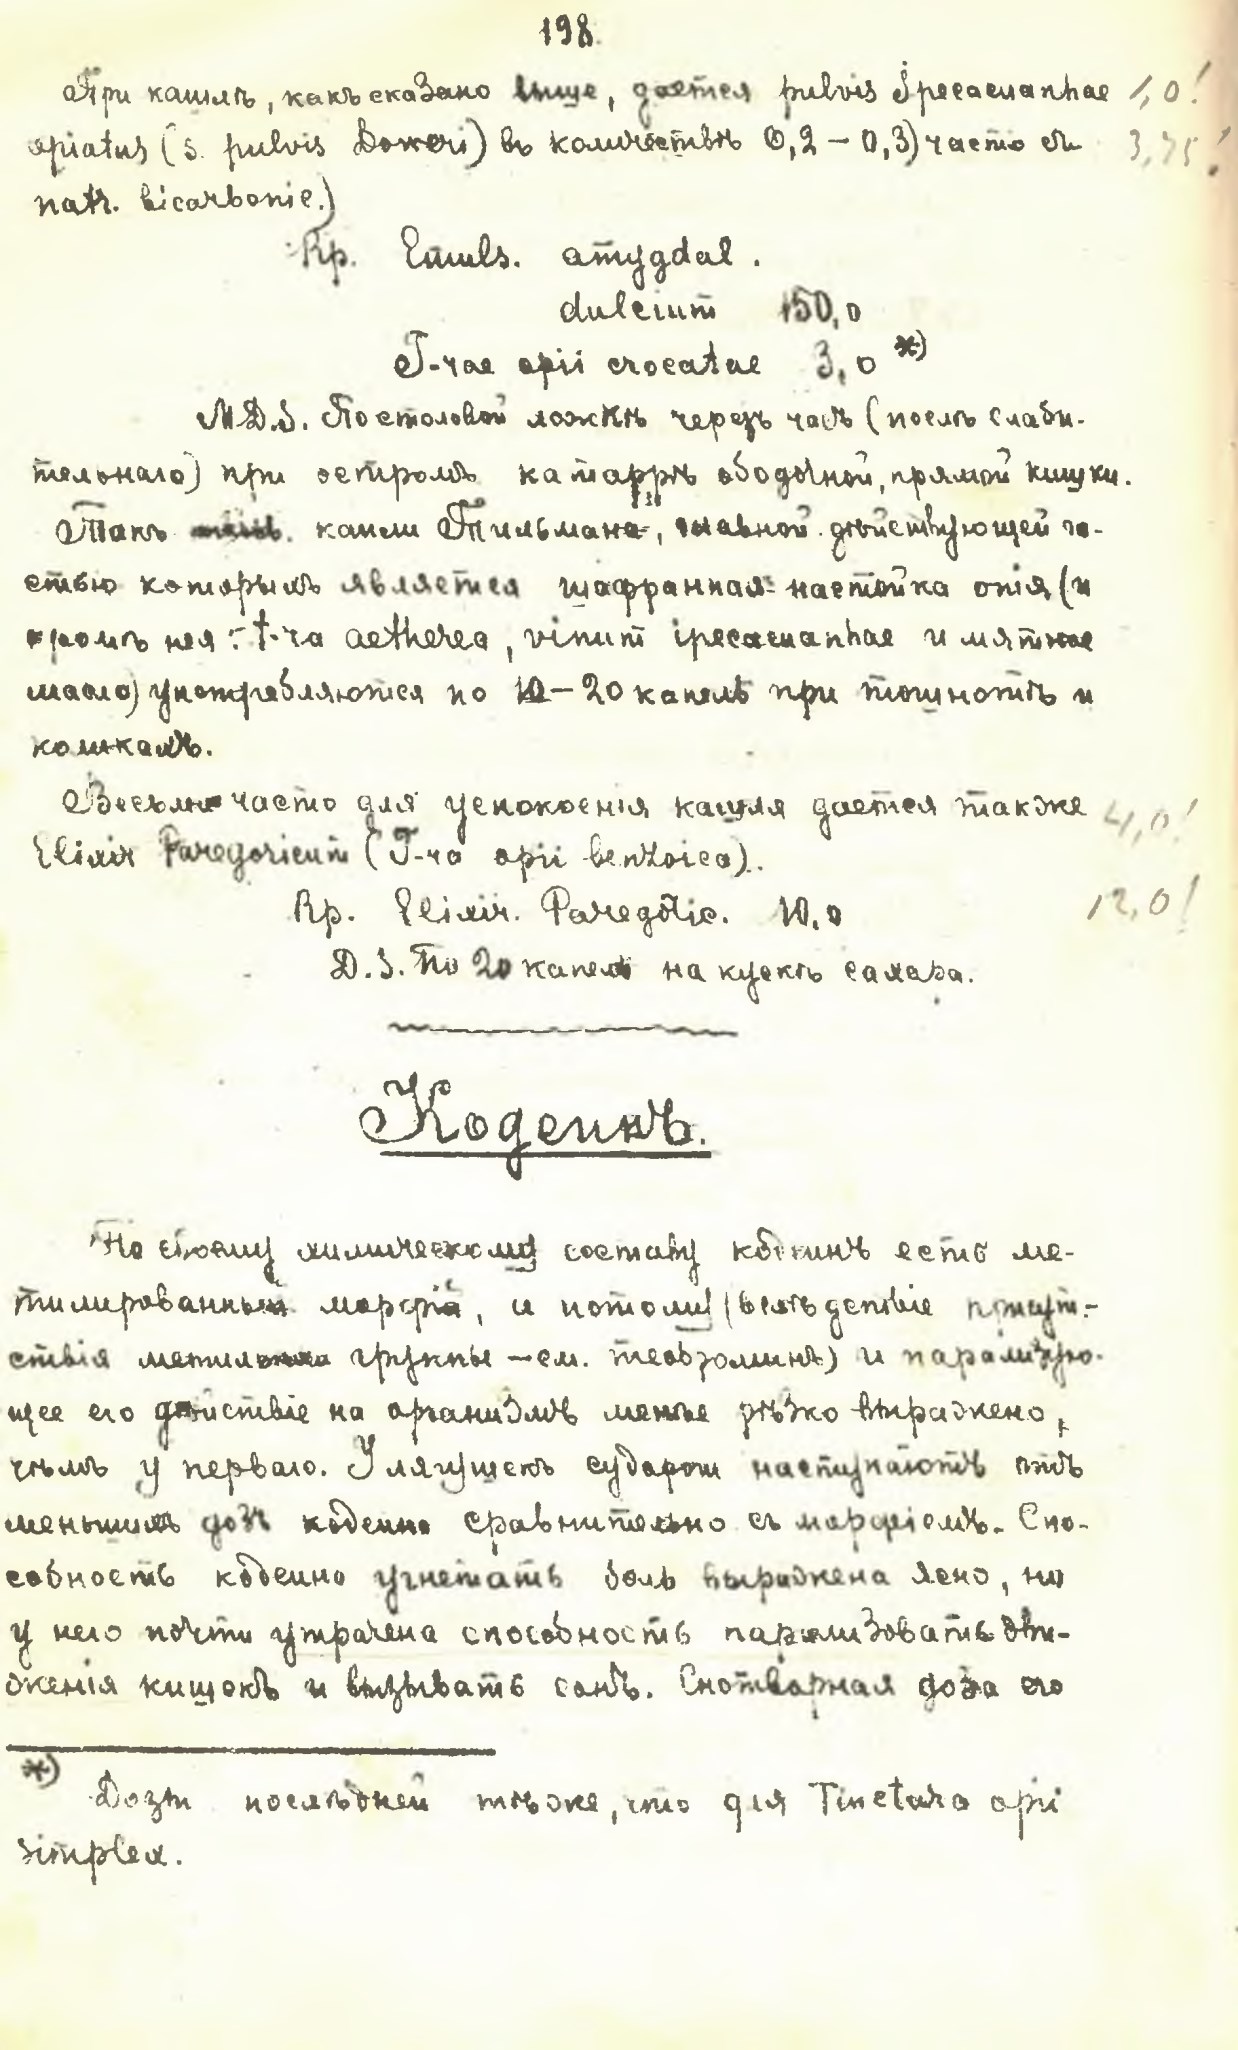 198
При кашлѣ, какъ сказано выше, дается pulvis Ipecacuanhae 1,0!
opiatus (s. pulvis Doweri) въ количествѣ 0,2 – 0,3) часто съ 3,75!
natr. bicarbonic.)
Rp. Emuls. amygdal.
dulcium 150,0
T-rae opii crocatae 3,0 *)
M.D.S. По столовой ложкѣ черезъ часъ (послѣ слаби-
тельнаго) при остромъ катаррѣ ободочной, прямой кишки.
Такъ капли Тильмана, главной дѣйствующей ча-
стью которымъ является шафранная настойка опія (и
кромѣ нея: t-ra aetherea, vinum ipecacuanhae и мятное
масло) употребляются по 10 – 20 капель при тошнотѣ и
коликахъ.
Весьма часто для успокоенія кашля дается также 4,0!
Elixir Paregoricum (T-ra opii benzoica).
Rp. Elixir. Paregoric. 10,0 12,0!
D.S. По 20 капель на кускѣ сахара.
Кодеинъ.
По своему химическому составу кодеинъ есть ме-
тилированный морфій, и потому (вслѣдствіе присут-
ствія метильной группы – см. теоброминъ) и парализую-
щее его дѣйствіе на организмъ менѣе рѣзко выражено,
чѣмъ у перваго. У лягушекъ судороги наступаютъ отъ
меньшихъ дозъ кодеина сравнительно съ морфіемъ. Спо-
собность кодеина угнетать боль выражена ясно, но
у него почти утрачена способность парализовать дви-
женія кишекъ и вызывать сонъ. Снотворная доза его
*) Дозы послѣдней тѣже, что для Tinctura opii
simplex.